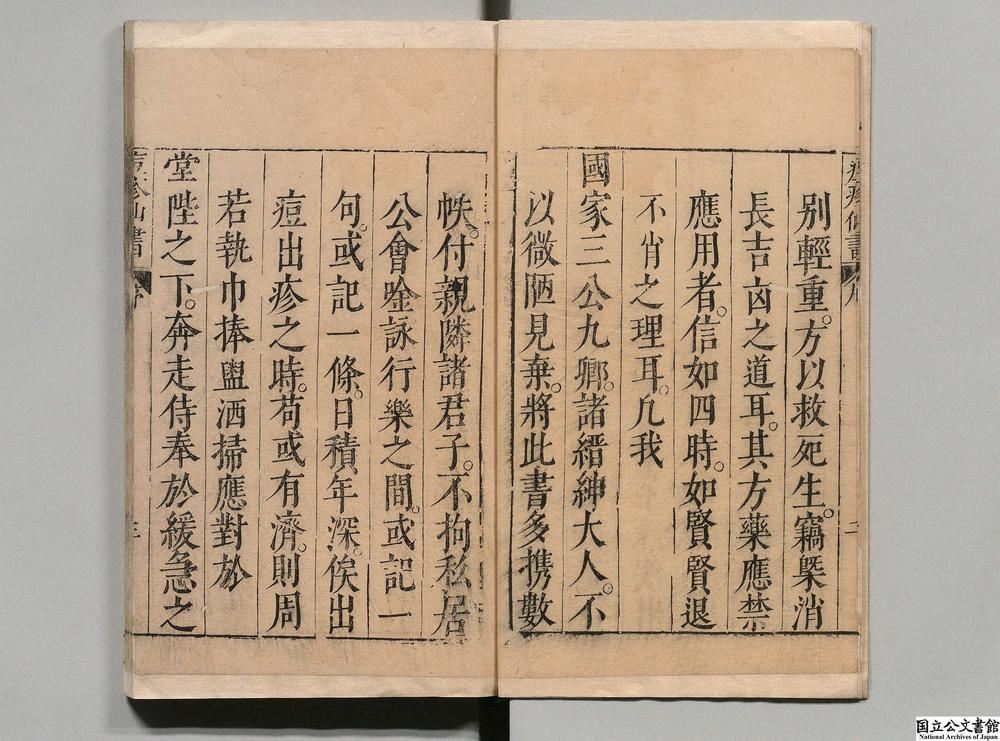 別輕重。方以救死生。竊槩消
長吉凶之道耳。其方藥應禁
應用者。信如四時。如賢賢退
不肖之理耳。凢我
國家三公九卿。諸縉紳大人。不
以微陋見棄。將此書多携數
帙。付親隣諸君子。不拘私居
公會唫詠行樂之間。或記一
句。或記一條。日積年深。俟出
痘出疹之時。苟或有濟。則周
若執巾捧盥洒掃應對於
堂陛之下。奔走侍奉於緩急之
國立公文書館
National Archives of Japan